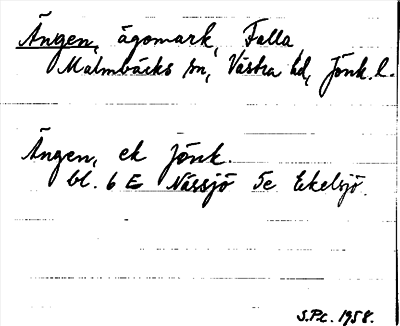 Ängen, ägomark, Falla,
Malmbäcks sn, Västra hd, Jönk. l.
Ängen, ek Jönk.
bl. 6 E Nässjö 5e Ekelsjö.
S.Pc. 1958.